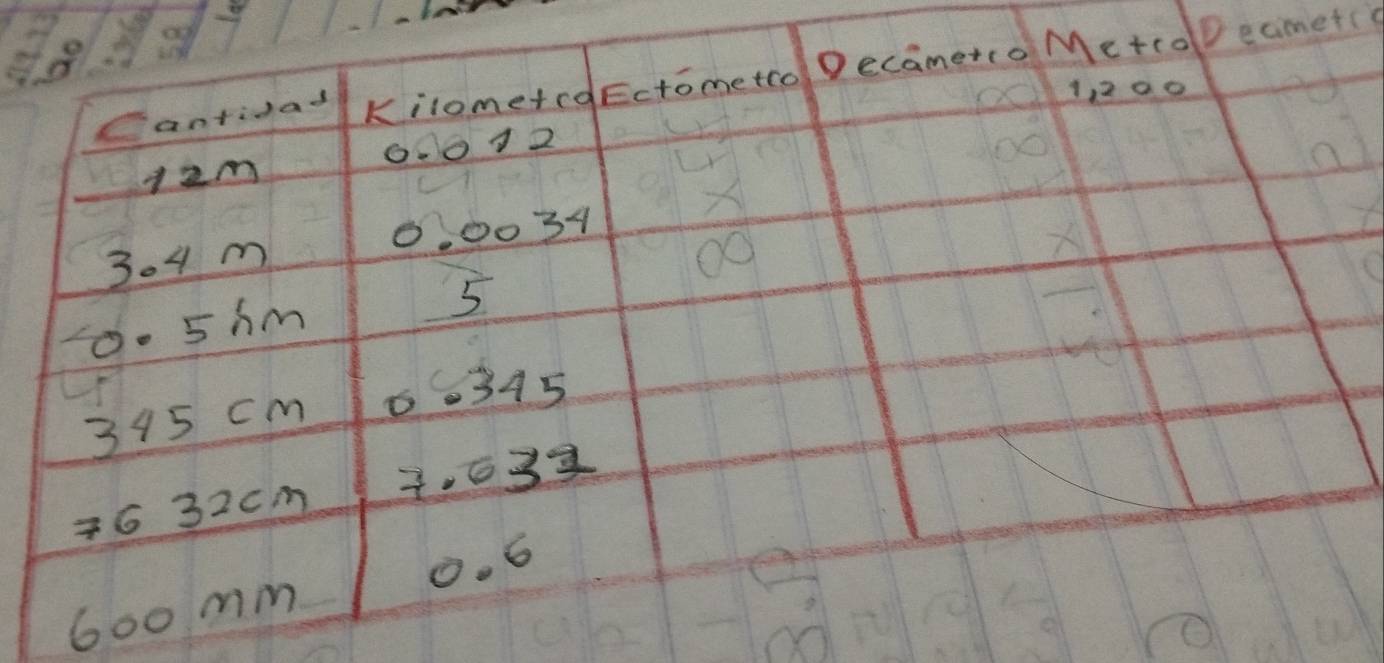 Cantidad Kilometro Ectómetro Decámetro Metro Decimetro
12m 0.012 1,200
3.4 m 0.0034
0.5 hm 5
345 cm 0.345
7632cm 7.632
600 mm 0.6